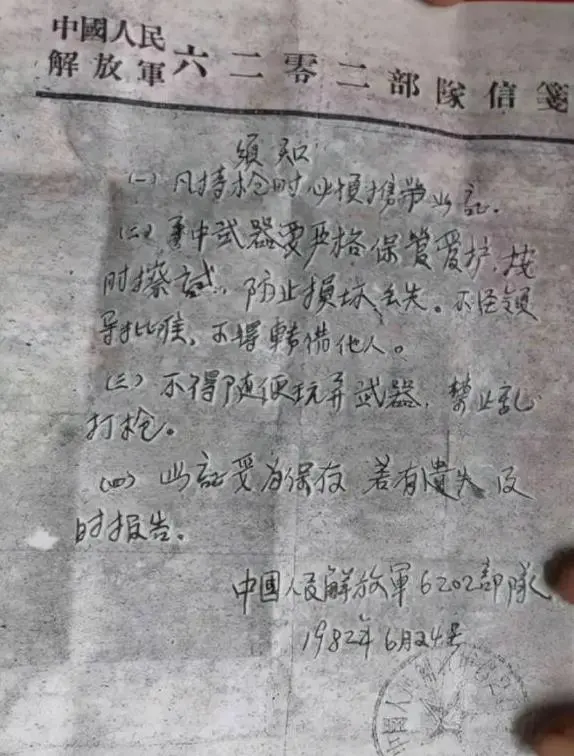 中國人民
解放軍六二零二部隊信箋
須知
(一) 凡持枪时必須携带此証.
(二) 手中武器要严格保管爱护,按
时擦拭,防止損坏丢失。不经領
导批准,不得轉借他人。
(三) 不得随便玩弄武器,禁止乱
打枪。
(四) 此証妥为保存 若有遺失及
时报告。
中國人民解放軍6202部隊
1982年6月24号